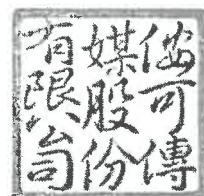 侒可傳
媒股份
有限公司